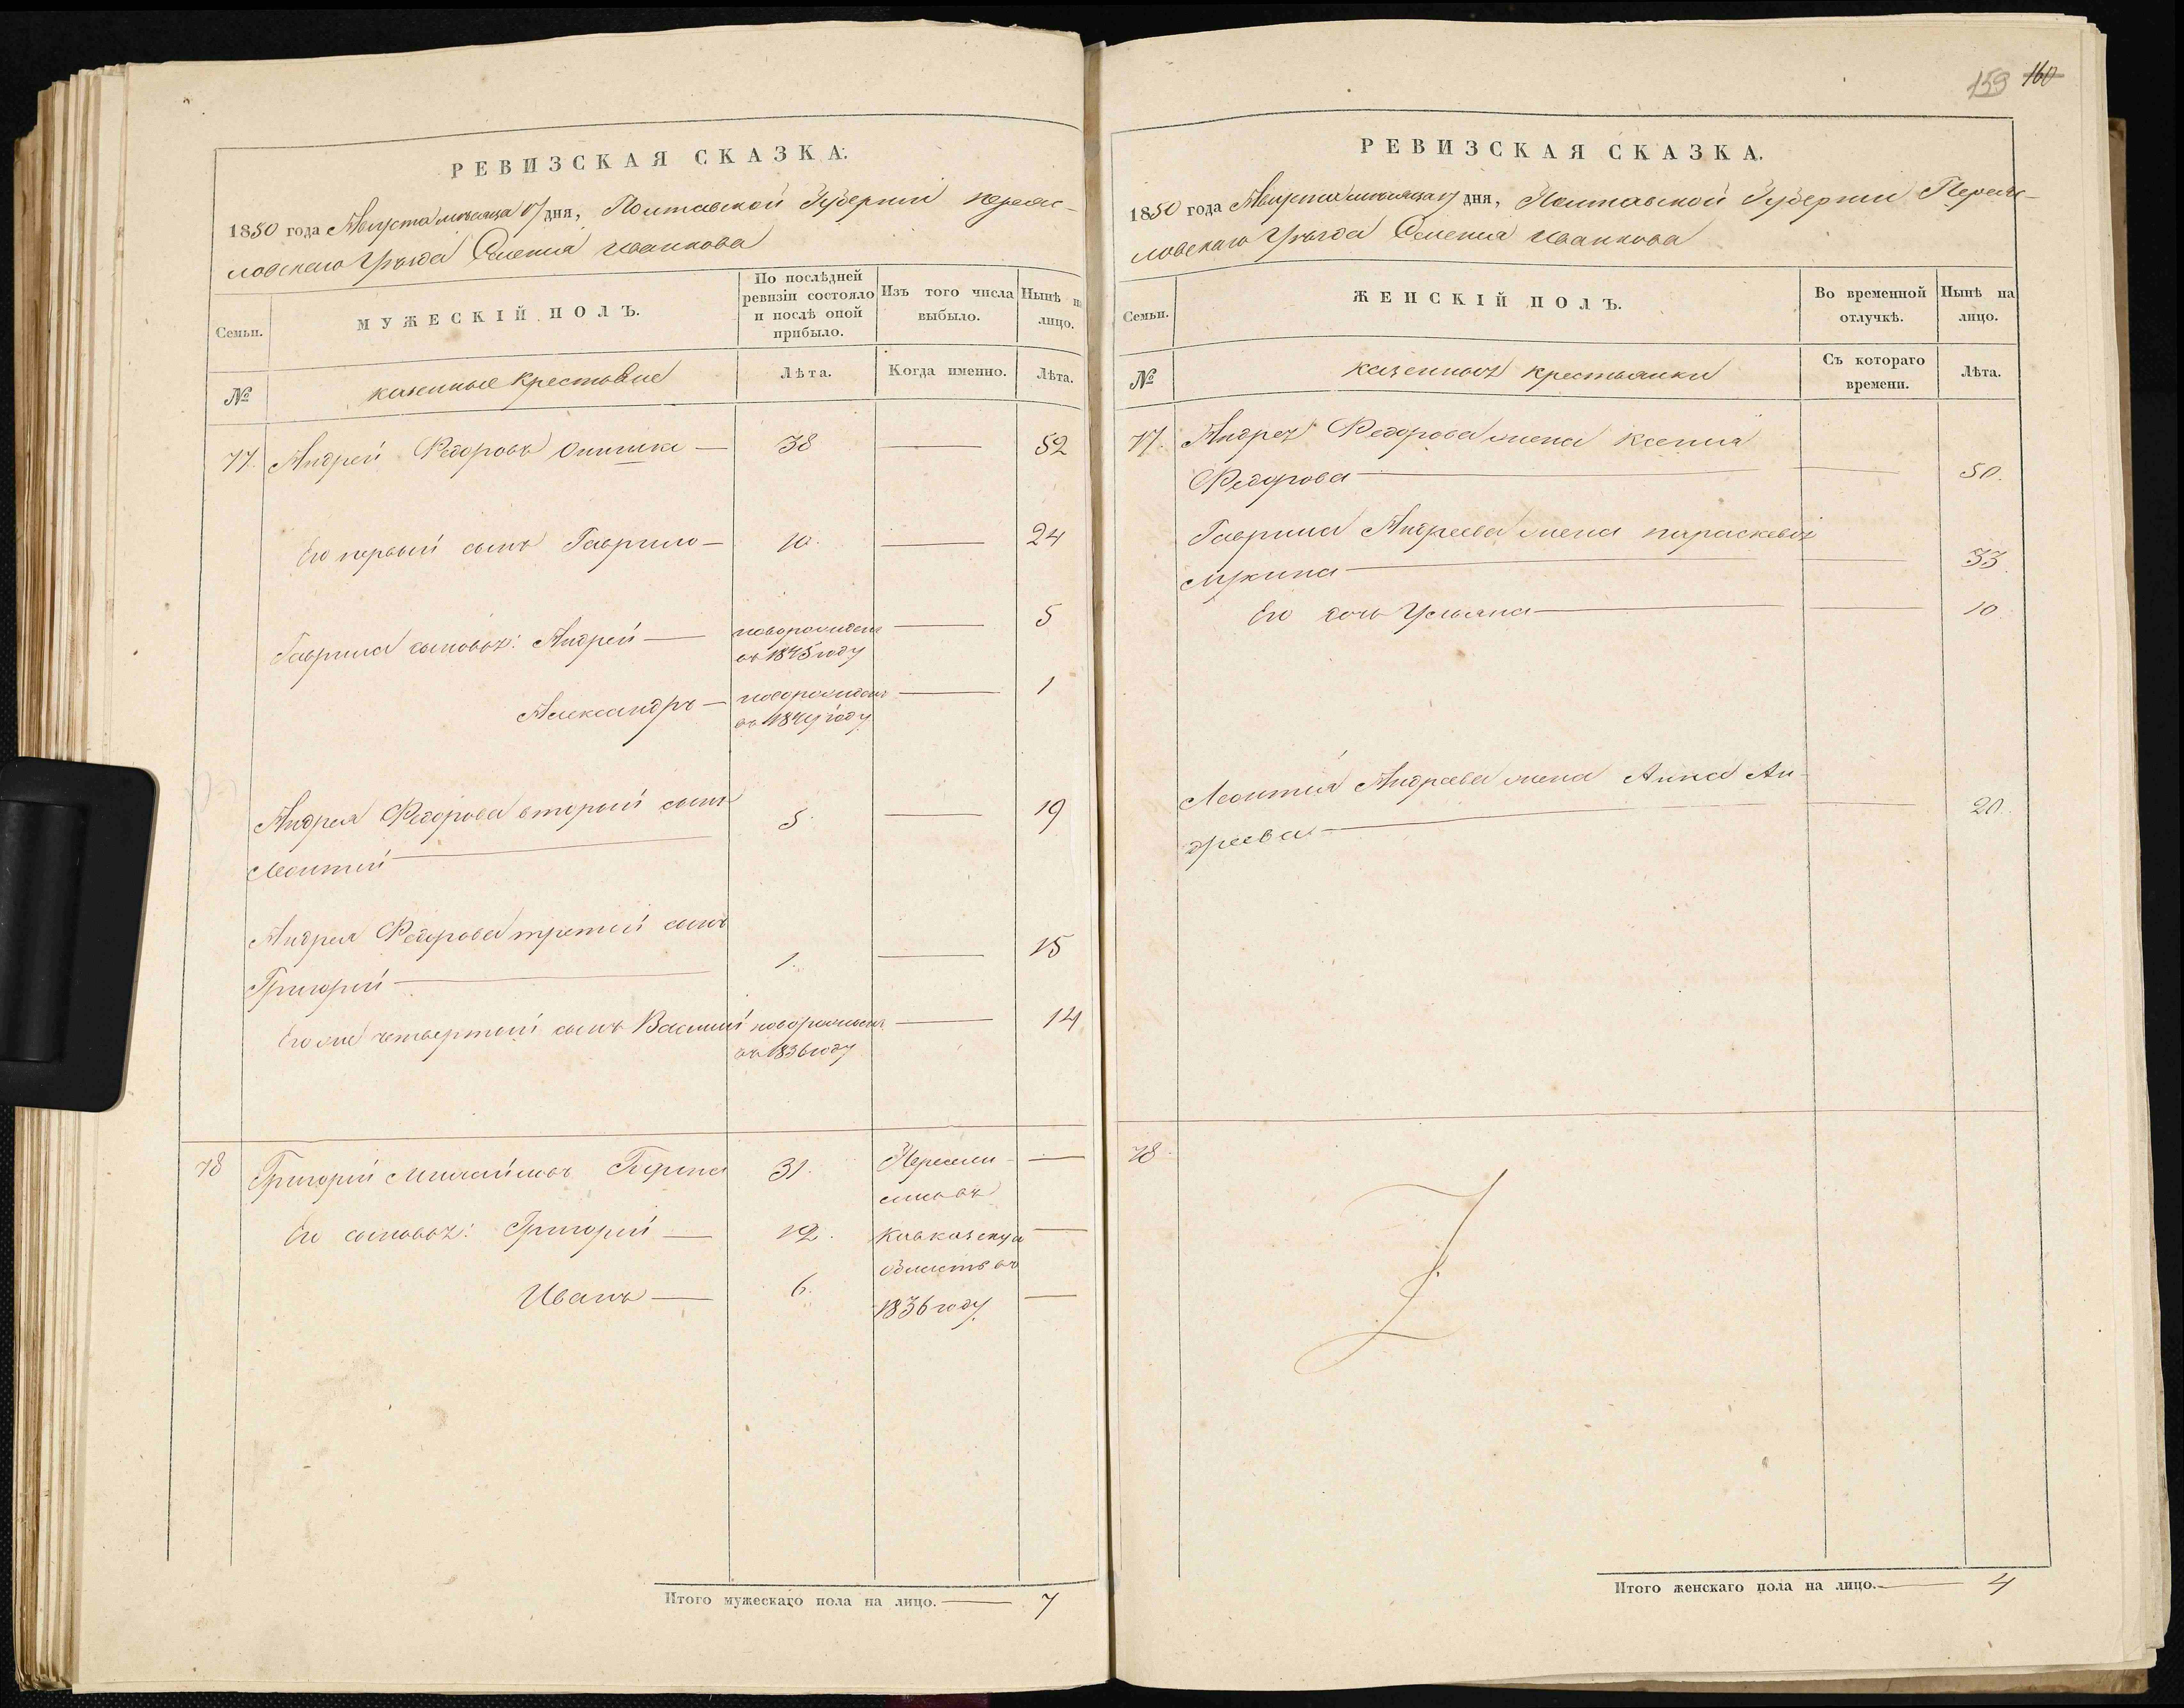 РЕВИЗСКАЯ СКАЗКА.
1850 года Августа месяца 17 дня, Полтавской Губернии Переяс-
ловского Уезда Селения Иванкова
Семьи.
МУЖЕСКІЙ ПОЛЪ.
По послѣдней
ревизіи состояло
и послѣ оной
прибыло.
Изъ того числа
выбыло.
Нынѣ на
лицо.
№
казенные крестьяне
Лѣта.
Когда именно.
Лѣта.
77. Андрей Федоровъ — 38 — 52
Его первый сынъ Гаврило — 10. — 24
Гаврила сыновья: Андрей — новорожденъ — 5
въ 1845 году
Александръ — новорожденъ — 1
въ 1849 году
Андрея Федорова вторый сынъ 5. — 19
Леонтий —
Андрея Федорова третий сынъ
Григорий — 1. — 15
Его же четвертый сынъ Василий новорожденъ — 14
въ 1836 году
78 Григорий Михайловъ 31. Пересели- —
лись въ
Его сыновья: Григорий — 12. Кавказскую —
область въ
Иванъ — 6. 1836 году —
Итого мужескаго пола на лицо. — 7
159 160
РЕВИЗСКАЯ СКАЗКА.
1850 года Августа месяца 17 дня, Полтавской Губернии Переяс-
ловского Уезда Селения Иванкова
Семьи.
ЖЕНСКІЙ ПОЛЪ.
Во временной
отлучкѣ.
Нынѣ на
лицо.
№
казенныя крестьянки
Съ котораго
времени.
Лѣта.
77. Андрея Федорова жена Ксения
Федорова — — 50.
Гаврила Андреева жена параскевия
Лукина — — 33.
Его дочь Ульяна — — 10.
Леонтия Андреева жена Анна Ан-
дреева — — 20.
78.
Итого женскаго пола на лицо. — 4